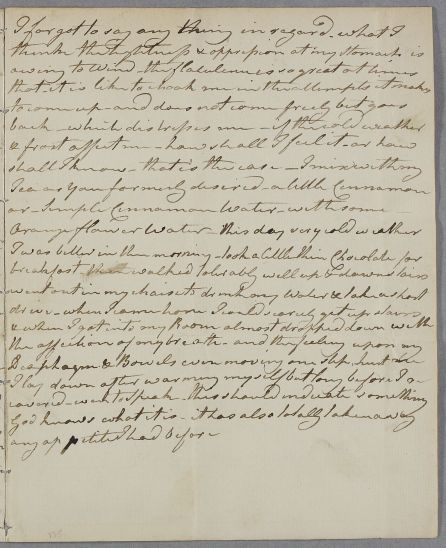 I forgot to say any thing in regard - what I
think the tightness & oppression at my stomach is
owing to Wind - the flatulence is so great at times
that it is like to choak me in the attempts it makes
to come up - and does not come freely but goes
back - which distresses me - If the cold weather
& frost affect me - how shall I feel it - or how
shall I know - that is the case - I mix with my
Tea as you formerly desired - a little Cinnamon
or - Simple Cinnamon Water - with some
Orange flower Water - this day very cold weather
I was better in the morning - took a little thin Chocolate for
breakfast walked tolerably well up & down stairs
went out in my chaise to drink my Water & take a short
drive - when I came home I could scarcely get up stairs
& when I got into my Room almost dropped down with
the affection of my breath - and the feeling upon my
& Bowels even moving one step, hurt me
I lay down after warming myself but long before I re
covered - went to speak - this should indicate something
God knows what it is - it has also totally taken away
any appetite I had before